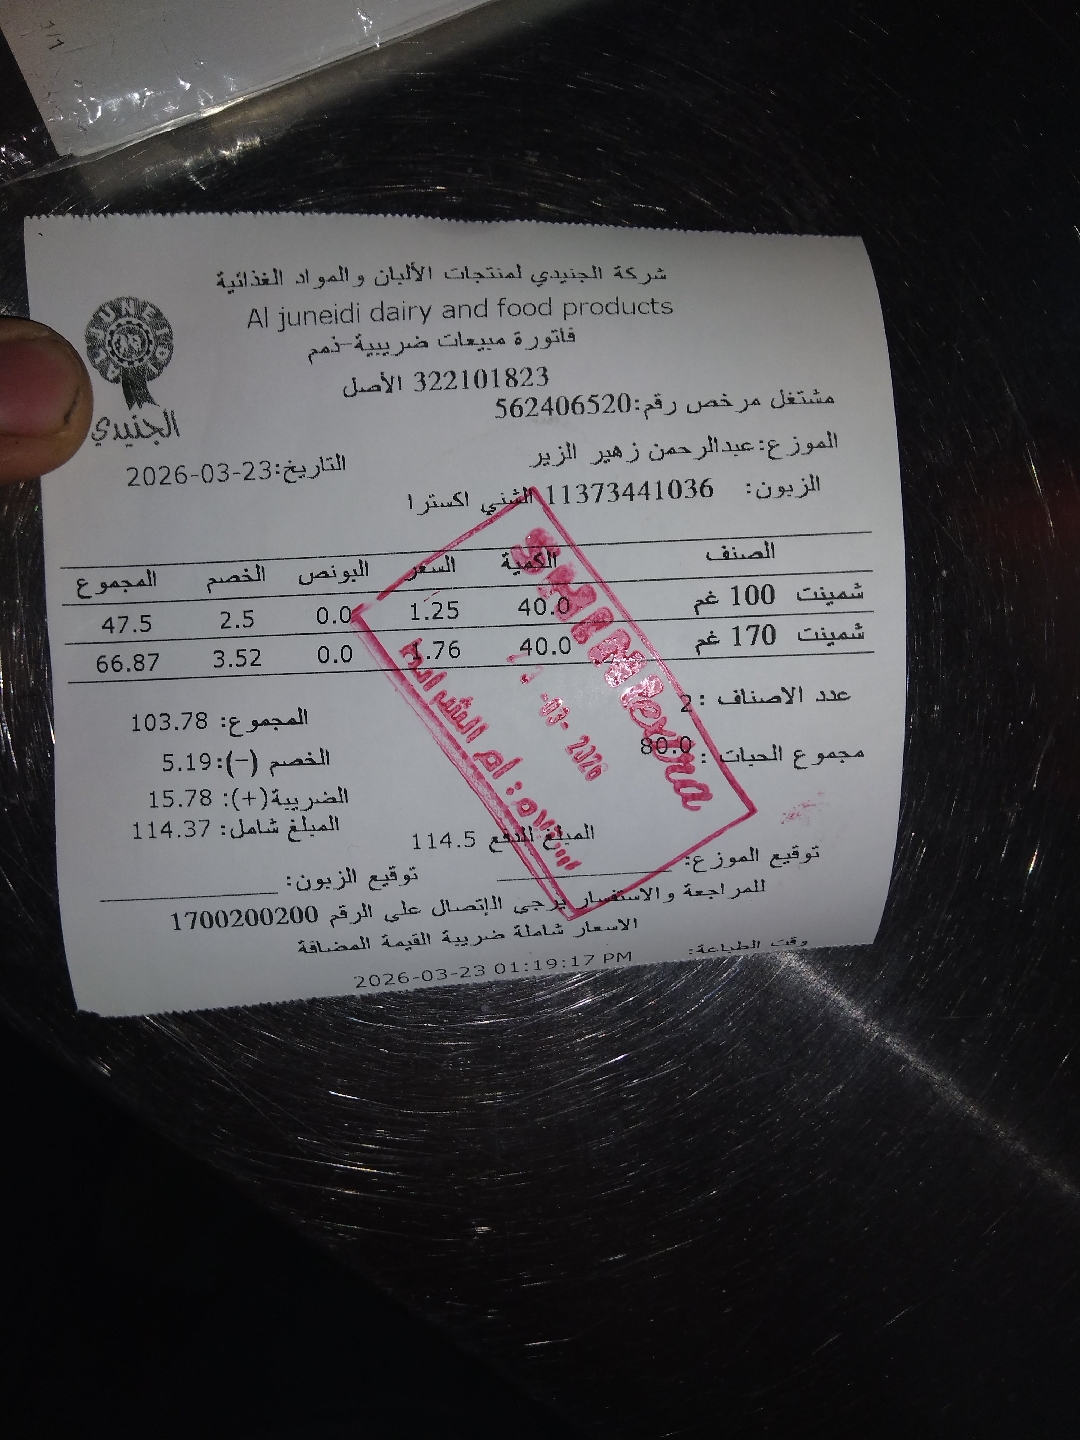 1/1
شركة الجنيدي لمنتجات الألبان والمواد الغذائية
Al juneidi dairy and food products
فاتورة مبيعات ضريبية-ذمم
322101823 الأصل
مشتغل مرخص رقم:562406520
AL JUNEIDI
الجنيدي
الموزع:عبدالرحمن زهير الزير
التاريخ:2026-03-23
الزبون: 11373441036 الشني اكسترا
الصنف الكمية السعر البونص الخصم المجموع
شمينت 100 غم 40.0 1.25 0.0 2.5 47.5
شمينت 170 غم 40.0 1.76 0.0 3.52 66.87
عدد الاصناف :2
المجموع: 103.78
مجموع الحبات : 80.0
الخصم (-):5.19
الضريبة(+): 15.78
المبلغ شامل: 114.37
المبلغ للدفع 114.5
توقيع الموزع:
توقيع الزبون:
للمراجعة والاستفسار يرجى الإتصال على الرقم 1700200200
الاسعار شاملة ضريبة القيمة المضافة
وقت الطباعة:
2026-03-23 01:19:17 PM
extra
-03- 2026
ام الشرايط